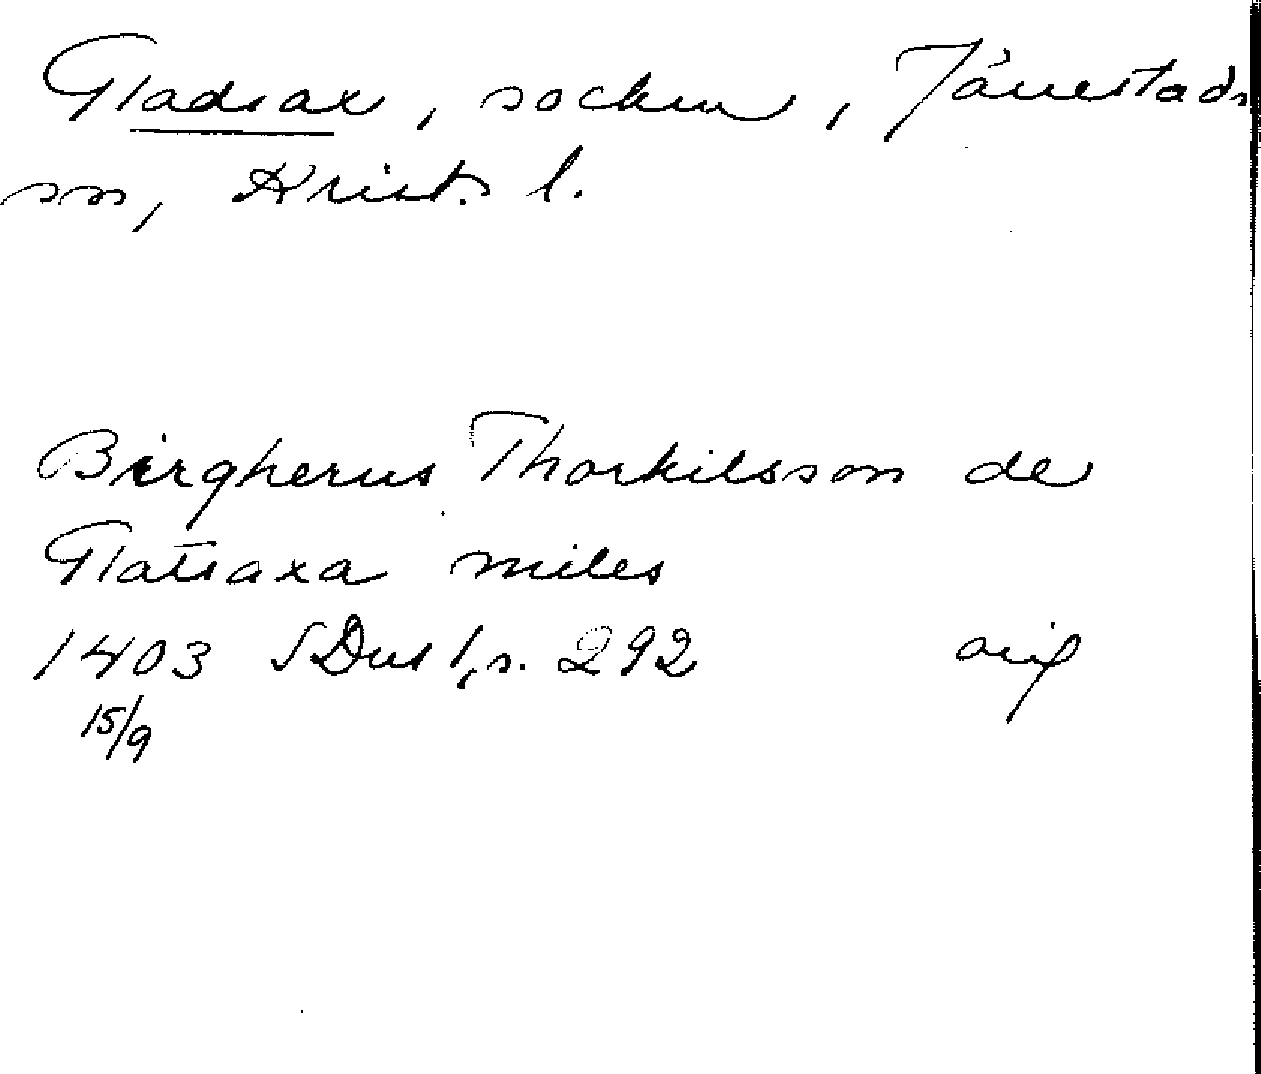 Gladsax, socken, Järrestads
sn, Krist. l.
Birgherus Thorkilsson de
Glatsaxa miles
1403 SDns 1, s. 292 orig
15/9